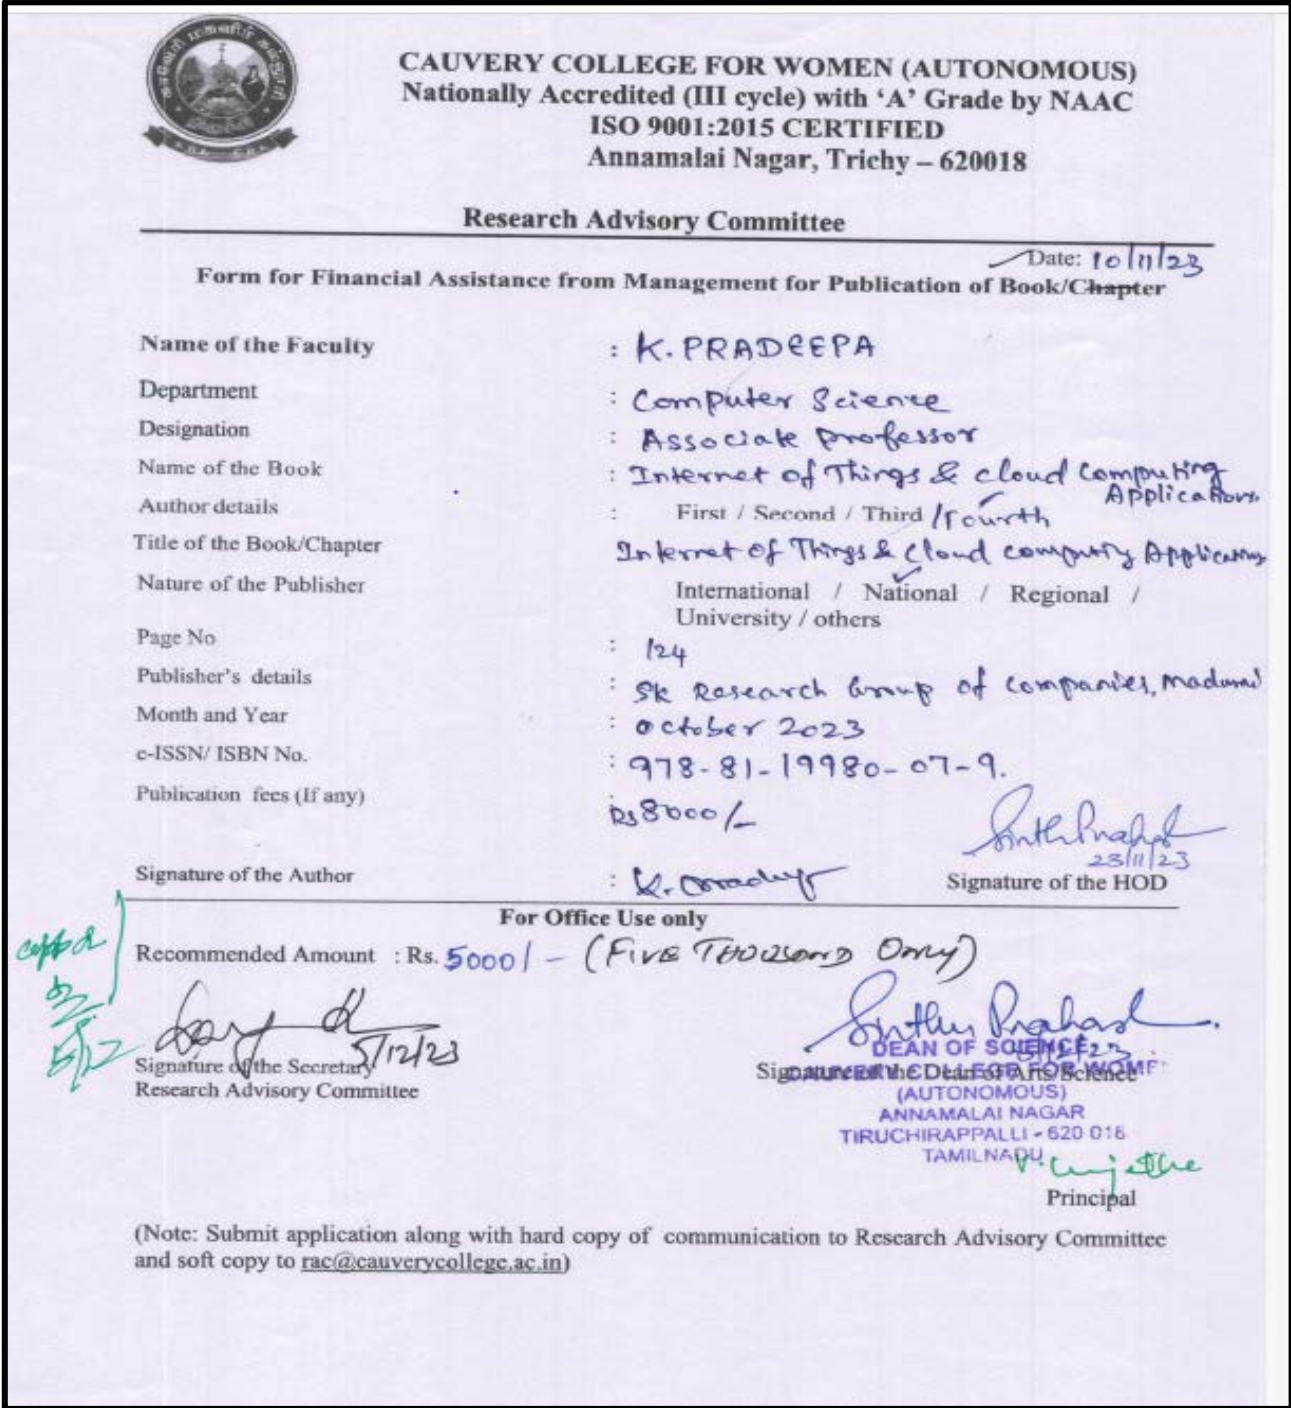 CAUVERY COLLEGE FOR WOMEN (AUTONOMOUS)
Nationally Accredited (III cycle) with ‘A’ Grade by NAAC
ISO 9001:2015 CERTIFIED
Annamalai Nagar, Trichy – 620018
Research Advisory Committee
Date: 10/11/23
Form for Financial Assistance from Management for Publication of Book/Chapter
Name of the Faculty : K. PRADEEPA
Department : Computer Science
Designation : Associate Professor
Name of the Book : Internet of Things & Cloud Computing Applications
Author details : First / Second / Third / Fourth
Title of the Book/Chapter Internet of Things & Cloud Computing Applications
Nature of the Publisher International / National / Regional /
University / others
Page No : 124
Publisher's details : SK Research Group of Companies, Madurai
Month and Year : October 2023
e-ISSN/ ISBN No. : 978-81-19980-07-9.
Publication fees (If any) : Rs 8000/-
23/11/23
Signature of the Author : K. Pradeepa
Signature of the HOD
For Office Use only
Recommended Amount : Rs. 5000/- (FIVE THOUSAND ONLY)
5/12/23
Sinthu Prakash
Signature of the Secretary
Research Advisory Committee
Signature of the Dean of Arts/Science
DEAN OF SCIENCE
CAUVERY COLLEGE FOR WOME
(AUTONOMOUS)
ANNAMALAI NAGAR
TIRUCHIRAPPALLI - 620 018
TAMILNADU
5/12
Principal
(Note: Submit application along with hard copy of communication to Research Advisory Committee
and soft copy to rac@cauverycollege.ac.in)